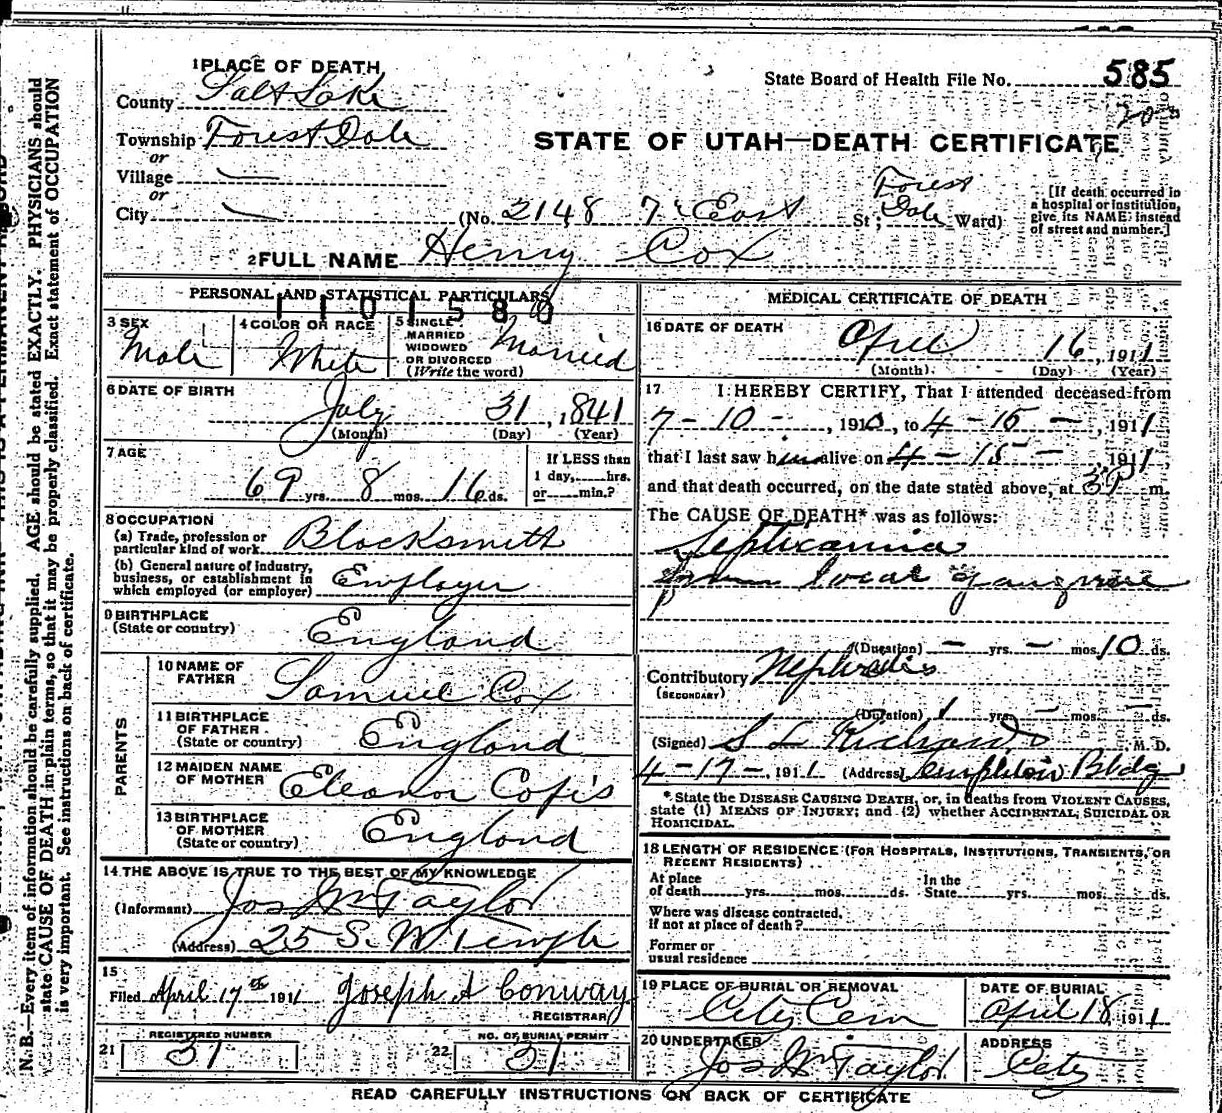 1 PLACE OF DEATH
State Board of Health File No. 585
County Salt Lake
Township Forest Dale
or
STATE OF UTAH—DEATH CERTIFICATE
Village —
or
City — (No. 2148 7 East St; Forest Dale Ward)
[If death occurred in
a hospital or institution,
give its NAME instead
of street and number.]
2 FULL NAME Henry Cox
PERSONAL AND STATISTICAL PARTICULARS
1101580
3 SEX
Male
4 COLOR OR RACE
White
5 SINGLE
MARRIED
WIDOWED
OR DIVORCED
(Write the word)
Married
6 DATE OF BIRTH
July 31, 1841
(Month) (Day) (Year)
7 AGE
69 yrs. 8 mos. 16 ds.
If LESS than
1 day, hrs.
or min.?
8 OCCUPATION
(a) Trade, profession or
particular kind of work Blacksmith
(b) General nature of industry,
business, or establishment in
which employed (or employer) Employer
9 BIRTHPLACE
(State or country) England
PARENTS
10 NAME OF
FATHER Samuel Cox
11 BIRTHPLACE
OF FATHER
(State or country) England
12 MAIDEN NAME
OF MOTHER Eleanor
13 BIRTHPLACE
OF MOTHER
(State or country) England
14 THE ABOVE IS TRUE TO THE BEST OF MY KNOWLEDGE
(Informant) Jos Wm Taylor
(Address) 25 S. W Temple
15
Filed April 17th 1911 Joseph A Conway
REGISTRAR
21 REGISTERED NUMBER
31
22 NO. OF BURIAL PERMIT
31
MEDICAL CERTIFICATE OF DEATH
16 DATE OF DEATH
April 16, 1911
(Month) (Day) (Year)
17 I HEREBY CERTIFY, That I attended deceased from
7-10-, 1910, to 4-15-, 1911
that I last saw him alive on 4-15-1911
and that death occurred, on the date stated above, at 3 P m.
The CAUSE OF DEATH* was as follows:
Septicaemia
from local gangrene
(Duration) — yrs. — mos. 10 ds.
Contributory Nephritis
(SECONDARY)
(Duration) 1 yrs. — mos. — ds.
(Signed) S L Richards M. D.
4-17-, 1911 (Address) Templeton Bldg
* State the DISEASE CAUSING DEATH, or, in deaths from VIOLENT CAUSES,
state (1) MEANS OF INJURY; and (2) whether ACCIDENTAL, SUICIDAL OR
HOMICIDAL.
18 LENGTH OF RESIDENCE (FOR HOSPITALS, INSTITUTIONS, TRANSIENTS, OR
RECENT RESIDENTS)
At place In the
of death yrs. mos. ds. State yrs. mos. ds.
Where was disease contracted,
if not at place of death?
Former or
usual residence
19 PLACE OF BURIAL OR REMOVAL
City Cem
DATE OF BURIAL
April 18 1911
20 UNDERTAKER
Jos Wm Taylor
ADDRESS
City
READ CAREFULLY INSTRUCTIONS ON BACK OF CERTIFICATE
N. B.—Every item of information should be carefully supplied. AGE should be stated EXACTLY. PHYSICIANS should
state CAUSE OF DEATH in plain terms, so that it may be properly classified. Exact statement of OCCUPATION
is very important. See instructions on back of certificate.